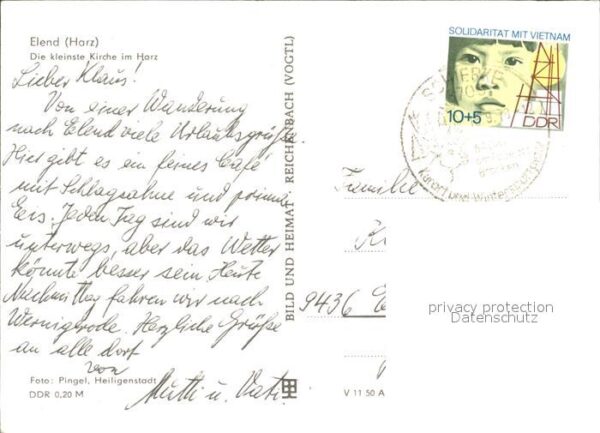 Elend (Harz)
Die kleinste Kirche im Harz
Lieber Klaus!
Von einer Wanderung
nach Elend viele Urlaubsgrüße.
Hier gibt es ein feines Café
mit Schlagsahne und prima
Eis. Jeden Tag sind wir
unterwegs, aber das Wetter
könnte besser sein. Heute
Nachmittag fahren wir nach
Wernigerode. Herzliche Grüße
an alle dort
von
Mutti u. Vati.
Foto: Pingel, Heiligenstadt
DDR 0,20 M
BILD UND HEIMAT REICHENBACH (VOGTL)
V 11 50 A
SOLIDARITÄT MIT VIETNAM
10+5
DDR
SCHIERKE
Kurort und Wintersportplatz
Familie
9436
privacy protection
Datenschutz